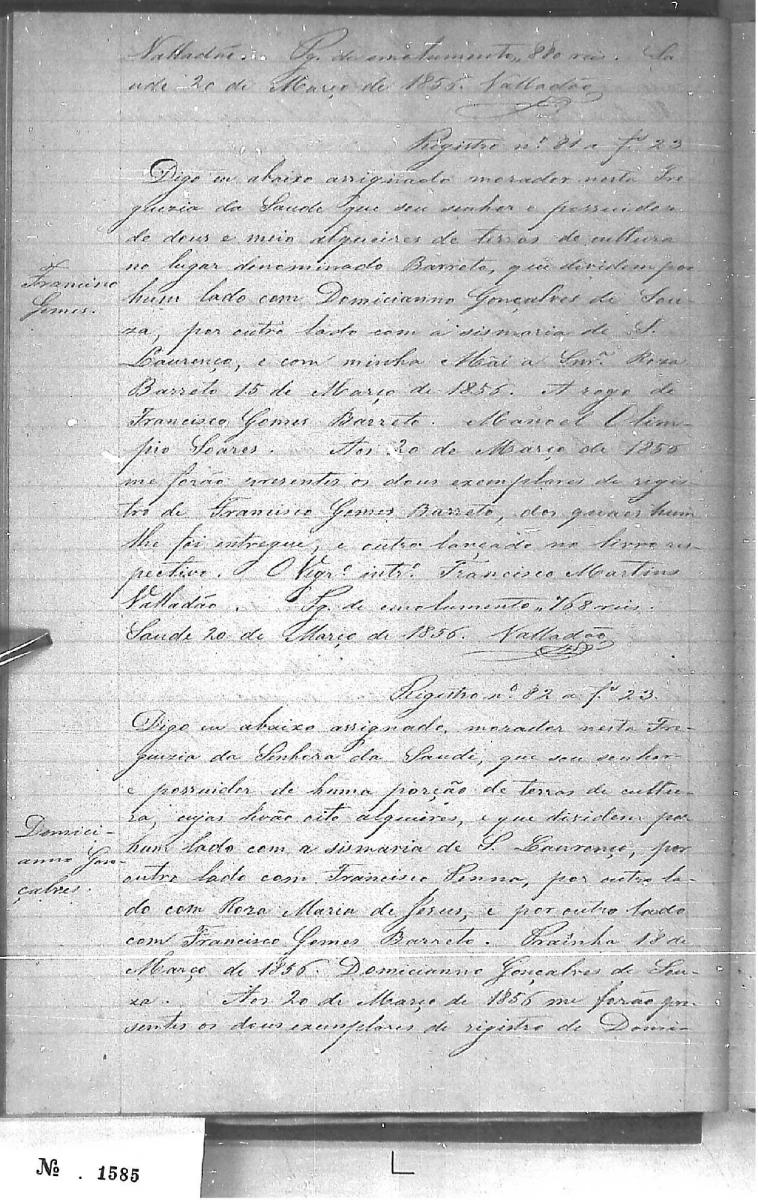 Valladão. Pg. de emolumento,, 880 reis. Sa
ude 20 de Março de 1856. Valladão
Registro nº 81 a fs 23
Digo eu abaixo assignado morador nesta Fre
guezia da Saude que sou senhor e possuidor
de dous e meio alqueires de terras de cultura
no lugar denominado Barreto, que dividem por
hum lado com Domicianno Gonçalves de Sou-
za, por outro lado com a sismaria de S.
Lourenço, e com minha Mãi a Snrª Roza
Barreto 15 de Março de 1856. A rogo de
Francisco Gomes Barreto. Manoel Olim-
pio Soares. Aos 20 de Março de 1856
me forão presentes os dous exemplares de regis
tro de Francisco Gomes Barreto, dos quaes hum
lhe foi entregue, e outro lançado no livro res-
pectivo. O Vigrº intrº Francisco Martins
Valladão. Pg. de emolumento,, 768 reis.
Saude 20 de Março de 1856. Valladão
Francisco
Gomes.
Registro nº 82 a fs 23.
Digo eu abaixo assignado, morador nesta Fre-
guezia da Senhora da Saude, que sou senhor
e possuidor de huma porção de terras de cultu-
ra, cujas oito alqueires, e que dividem por
hum lado com a sismaria de S. Lourenço, por
outro lado com Francisco Penna, por outro la-
do com Roza Maria de Jesus, e por outro lado
com Francisco Gomes Barreto. Prainha 18 de
Março de 1856. Domicianno Gonçalves de Sou-
za. Aos 20 de Março de 1856 me forão pre-
sentes os dous exemplares de registro de Domici-
Domici-
anno Gon-
çalves.
Nº . 1585